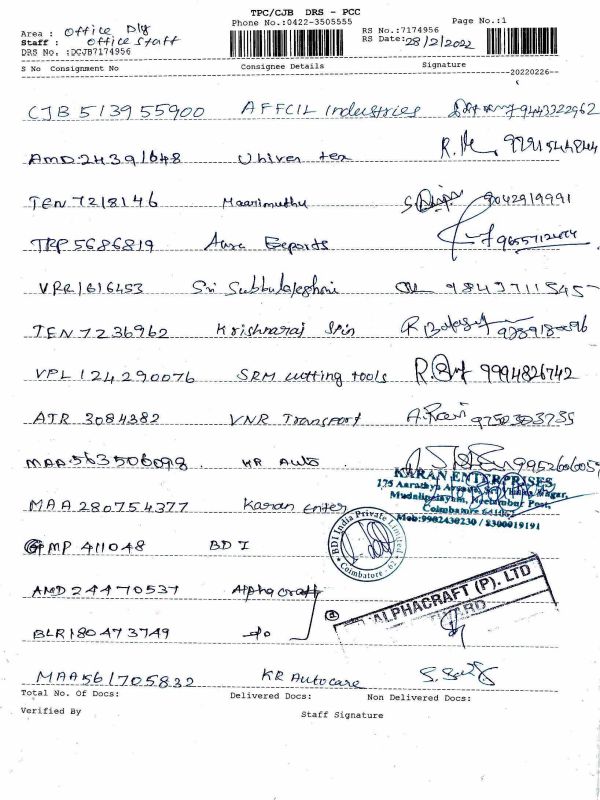 TPC/CJB DRS - PCC
Phone No.:0422-3505555
Page No.:1
Area : Office Dly
Staff : Office Staff
DRS No. :DCJB7174956
RS No.:7174956
RS Date:28/2/2022
S No Consignment No Consignee Details Signature
20220226
CJB 513955900 AFFCIL Industries 9443322962
AMD 24391648 Univer tex
TEN 7218146 Maarimuthu 9042919991
TRP 5686819 Aura Exports
VRR 1616453 Sri Subbulakshmi
TEN 7236962 Krishnaraj Spin
VPL 124290076 SRM cutting tools 9994826742
ATR 3084382 VNR Transport 9750303735
MAA 563506098 KR Auto
MAA 280754377 Karan Enter
KARAN ENTERPRISES
Coimbatore
Mob:9902430230 / 8300019191
GMP 411048 BDI
BDI India Private Limited
Coimbatore - 62
AMD 24470537 Alphacraft
ALPHACRAFT (P). LTD
BLR 180473749 do
MAA 561705832 KR Autocare
Total No. Of Docs: Delivered Docs: Non Delivered Docs:
Verified By Staff Signature